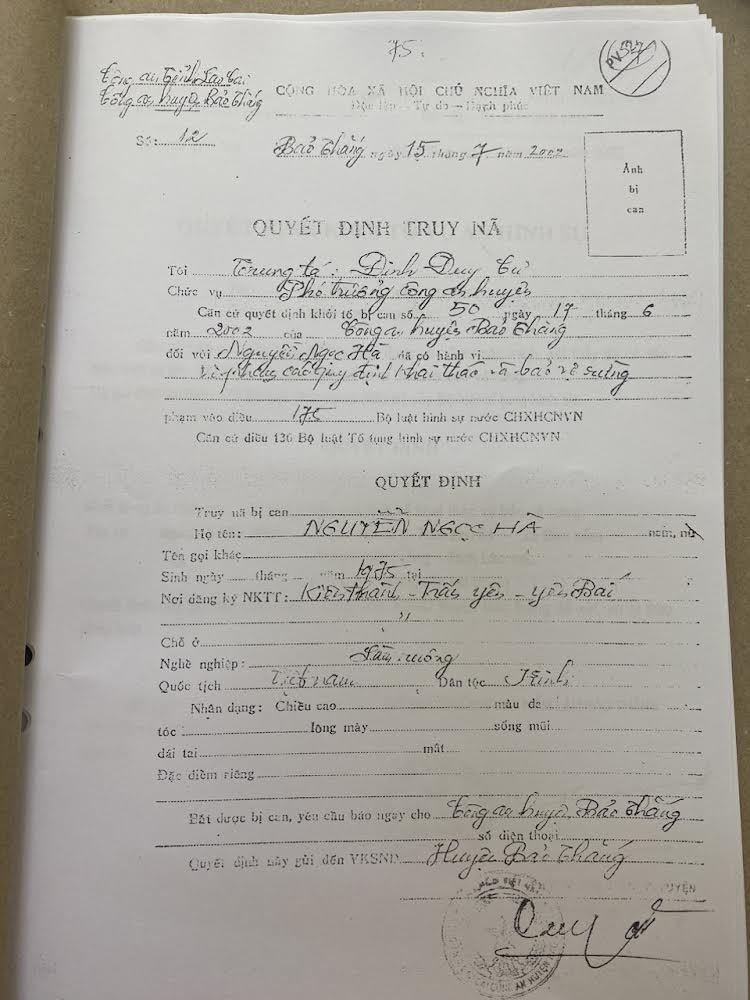 75.
PV327
Công an tỉnh Lao Cai
Công an huyện Bảo Thắng
CỘNG HÒA XÃ HỘI CHỦ NGHĨA VIỆT NAM
Độc lập - Tự do - Hạnh phúc
Số: 12
Bảo Thắng ngày 15 tháng 7 năm 2002
Ảnh
bị
can
QUYẾT ĐỊNH TRUY NÃ
Tôi Trung tá: Đinh Duy Tư
Chức vụ Phó trưởng công an huyện
Căn cứ quyết định khởi tố bị can số 50 ngày 17 tháng 6
năm 2002 của Công an huyện Bảo Thắng
đối với Nguyễn Ngọc Hà đã có hành vi
Vi phạm các quy định khai thác và bảo vệ rừng
phạm vào điều 175 Bộ luật hình sự nước CHXHCNVN
Căn cứ điều 136 Bộ luật Tố tụng hình sự nước CHXHCNVN
QUYẾT ĐỊNH
Truy nã bị can
Họ tên: NGUYỄN NGỌC HÀ nam, nữ
Tên gọi khác
Sinh ngày tháng năm 1975 tại
Nơi đăng ký NKTT: Kiên thành - Trấn yên - yên Bái
"
Chỗ ở
Nghề nghiệp: Làm ruộng
Quốc tịch Việt nam Dân tộc Kinh
Nhận dạng: Chiều cao màu da
tóc lông mày sống mũi
dái tai mắt
Đặc điểm riêng
Bắt được bị can, yêu cầu báo ngay cho Công an huyện Bảo Thắng
số điện thoại
Quyết định này gửi đến VKSND Huyện Bảo Thắng
HUYỆN